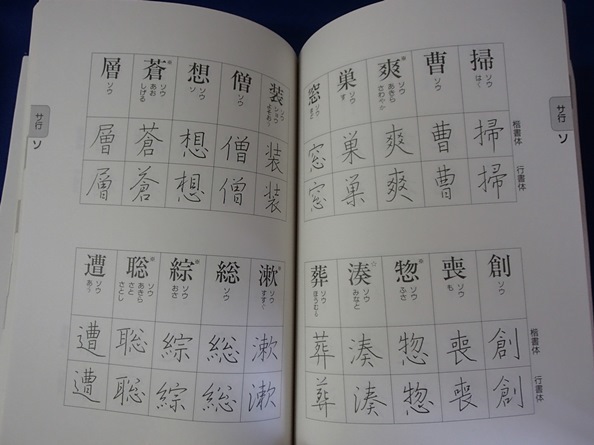 サ行
ソ
掃 ソウ は・く
曹 ソウ
爽※ ソウ あきら さわやか
巣 ソウ す
窓 ソウ まど
楷書体 掃 曹 爽 巣 窓
行書体 掃 曹 爽 巣 窓
創 ソウ
喪 ソウ も
惣※ ソウ ふさ
湊☆ ソウ みなと
葬 ソウ ほうむ・る
楷書体 創 喪 惣 湊 葬
行書体 創 喪 惣 湊 葬
装 ソウ ショウ よそお・う
僧 ソウ
想 ソウ ソ
蒼※ ソウ あお しげる
層 ソウ
装 僧 想 蒼 層
装 僧 想 蒼 層
漱※ ソウ すす・ぐ
総 ソウ
綜※ ソウ おさ
聡※ ソウ あきら さと さとし
遭 ソウ あ・う
漱 総 綜 聡 遭
漱 総 綜 聡 遭
サ行
ソ